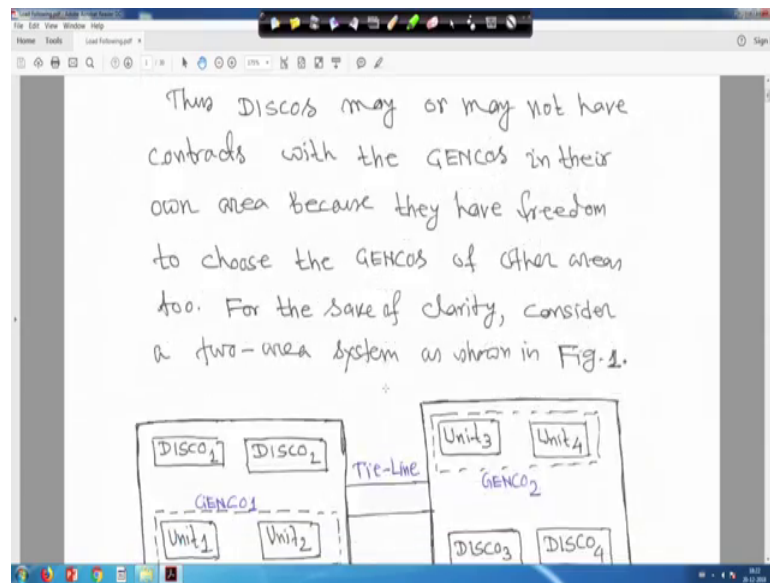 Load Following.pdf - Adobe Acrobat Reader DC
File Edit View Window Help
Home Tools Load Following.pdf × Sign
Thus DISCOS may or may not have
contracts with the GENCOS in their
own area because they have freedom
to choose the GENCOS of other areas
too. For the sake of clarity, consider
a two-area system as shown in Fig.1.
DISCO1 DISCO2
GENCO1
Unit1 Unit2
Tie-Line
Unit3 Unit4
GENCO2
DISCO3 DISCO4